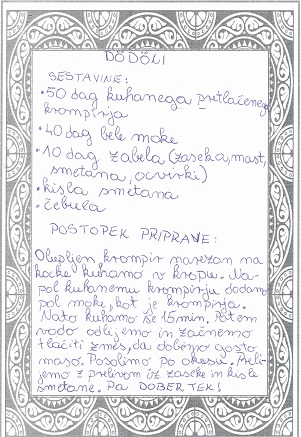 DÖDÖLI
SESTAVINE:
• 50 dag kuhanega pretlačenega
krompirja
• 40 dag bele moke
• 10 dag zabela (zaseka, mast,
smetana, ocvirki)
• kisla smetana
• čebula
POSTOPEK PRIPRAVE:
Olupljen krompir narezan na
kocke kuhamo v kropu. Na-
pol kuhanemu krompirju dodamo
pol moke, kot je krompirja.
Nato kuhamo še 15 min. Potem
vodo odlijemo in začnemo
tlačiti zmes, da dobimo gosto
maso. Posolimo po okusu. Preli-
jemo z prelivom iz zaseke in kisle
smetane. Pa DOBER TEK!